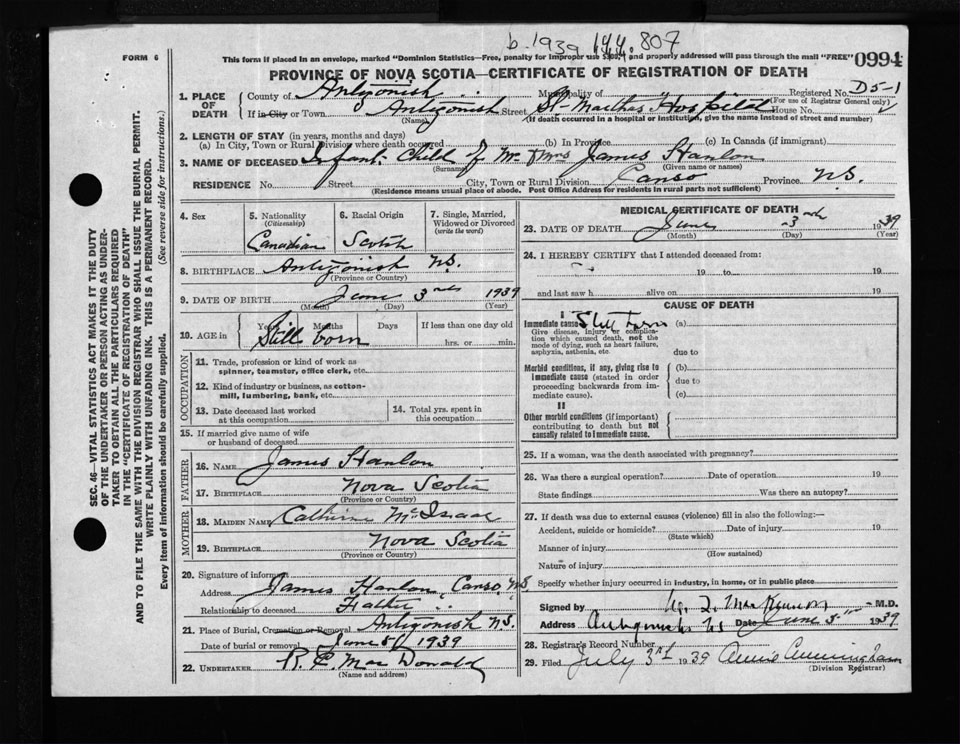 b. 1939 144.807
FORM 6
This form if placed in an envelope, marked "Dominion Statistics—Free, penalty for improper use $300," and properly addressed will pass through the mail "FREE"
0994
PROVINCE OF NOVA SCOTIA—CERTIFICATE OF REGISTRATION OF DEATH
1. PLACE OF DEATH
County of Antigonish Municipality of Registered No. D5-1
(For use of Registrar General only)
If in City or Town Antigonish Street St. Martha's Hospital House No.
(Name) (If death occurred in a hospital or institution, give the name instead of street and number)
2. LENGTH OF STAY (in years, months and days)
(a) In City, Town or Rural Division where death occurred (b) In Province (c) In Canada (if immigrant)
3. NAME OF DECEASED Infant Child of Mr & Mrs James Hanlon
(Surname) (Given name or names)
RESIDENCE No. Street City, Town or Rural Division Canso Province N.S.
(Residence means usual place of abode. Post Office Address for residents in rural parts not sufficient)
4. Sex
5. Nationality (Citizenship) Canadian
6. Racial Origin Scotch
7. Single, Married, Widowed or Divorced (write the word)
8. BIRTHPLACE Antigonish N.S.
(Province or Country)
9. DATE OF BIRTH June 3rd 1939
(Month) (Day) (Year)
10. AGE in Years Months Days If less than one day old
Still born hrs. or min.
OCCUPATION
11. Trade, profession or kind of work as spinner, teamster, office clerk, etc.
12. Kind of industry or business, as cotton-mill, lumbering, bank, etc.
13. Date deceased last worked at this occupation
14. Total yrs. spent in this occupation
15. If married give name of wife or husband of deceased
FATHER
16. NAME James Hanlon
17. BIRTHPLACE Nova Scotia
(Province or Country)
MOTHER
18. MAIDEN NAME Catherine McIsaac
19. BIRTHPLACE Nova Scotia
(Province or Country)
20. Signature of informant
Address James Hanlon, Canso, N.S.
Relationship to deceased Father
21. Place of Burial, Cremation or Removal Antigonish N.S.
Date of burial or removal June 1939
22. UNDERTAKER R. MacDonald
(Name and address)
MEDICAL CERTIFICATE OF DEATH
23. DATE OF DEATH June 3rd 1939
(Month) (Day) (Year)
24. I HEREBY CERTIFY that I attended deceased from:
19 to 19
and last saw h alive on 19
CAUSE OF DEATH
I
Immediate cause Still born (a)
Give disease, injury or complication which caused death, not the mode of dying, such as heart failure, asphyxia, asthenia, etc.
due to
Morbid conditions, if any, giving rise to immediate cause (stated in order proceeding backwards from immediate cause).
(b)
due to
(c)
II
Other morbid conditions (if important) contributing to death but not causally related to immediate cause.
25. If a woman, was the death associated with pregnancy?
26. Was there a surgical operation? Date of operation 19
State findings Was there an autopsy?
27. If death was due to external causes (violence) fill in also the following:—
Accident, suicide or homicide? Date of injury 19
(State which)
Manner of injury
(How sustained)
Nature of injury
Specify whether injury occurred in industry, in home, or in public place
Signed by MacKinnon M.D.
Address Antigonish NS Date June 5 1939
28. Registrar's Record Number
29. Filed July 3rd 1939 Annie Cunningham
(Division Registrar)
SEC. 46—VITAL STATISTICS ACT MAKES IT THE DUTY
OF THE UNDERTAKER OR PERSON ACTING AS UNDER-
TAKER TO OBTAIN ALL THE PARTICULARS REQUIRED
IN THE "CERTIFICATE OF REGISTRATION OF DEATH"
AND TO FILE THE SAME WITH THE DIVISION REGISTRAR WHO SHALL ISSUE THE BURIAL PERMIT.
WRITE PLAINLY WITH UNFADING INK. THIS IS A PERMANENT RECORD.
Every item of information should be carefully supplied. (See reverse side for instructions.)